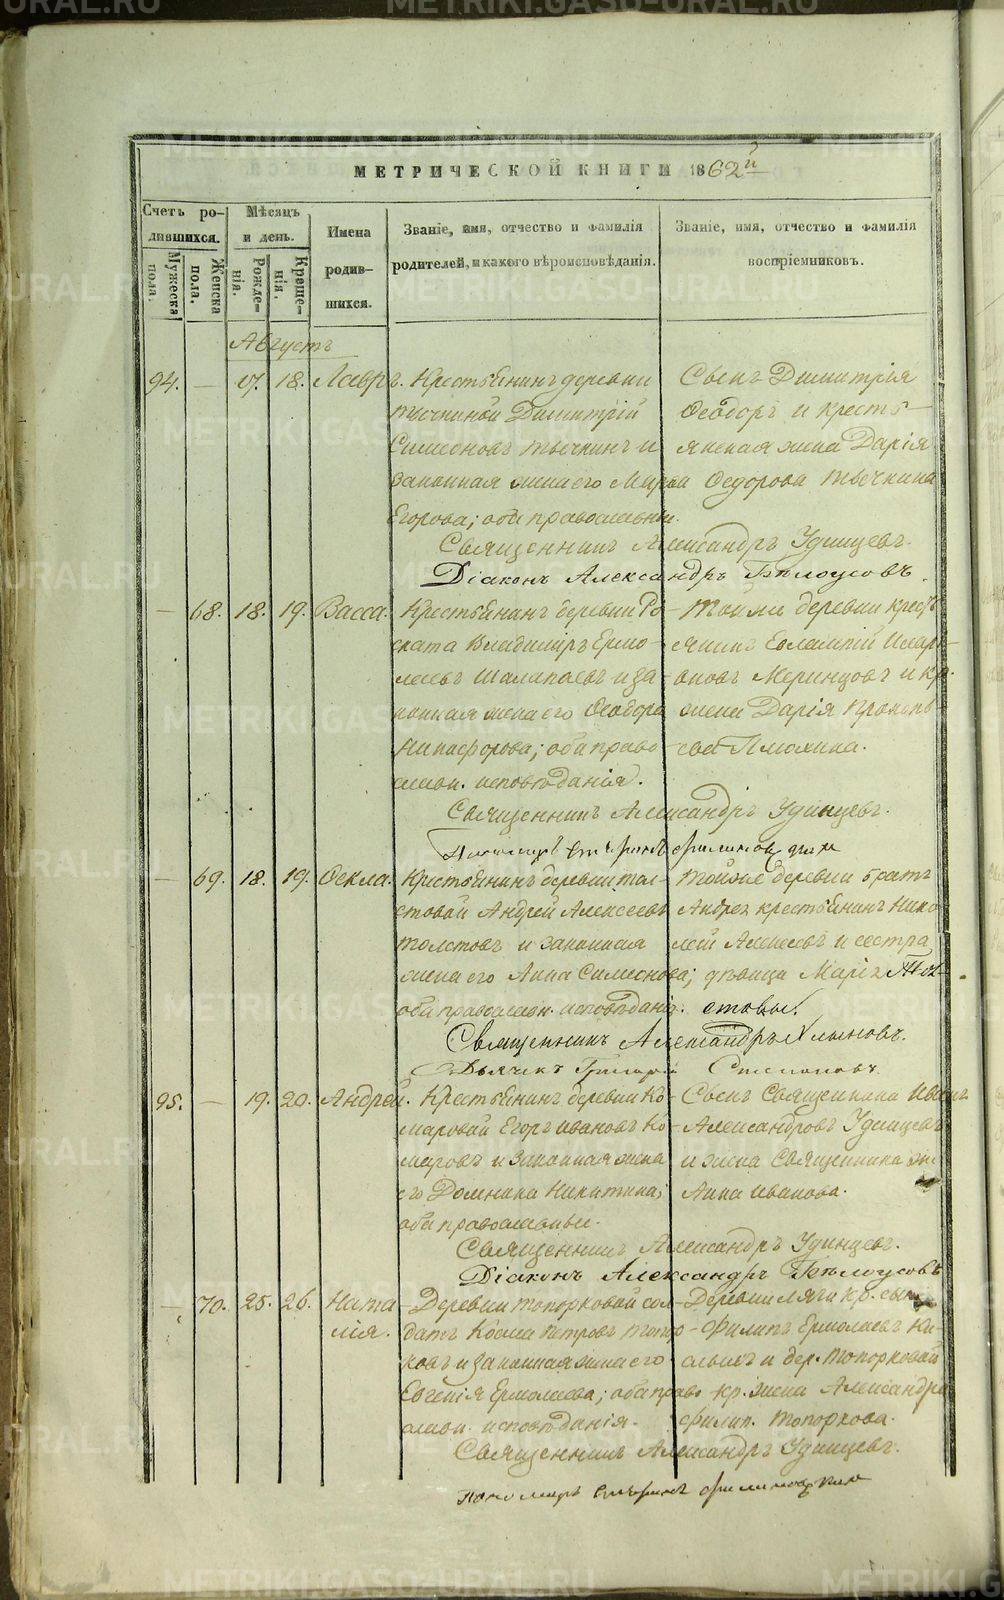 МЕТРИЧЕСКОЙ КНИГИ 1862й
Счетъ ро-
дившихся.
Мужеска пола.
Женска пола.
Мѣсяцъ
и день.
Рожде-
нія.
Креще-
нія.
Имена
родив-
шихся.
Званіе, имя, отчество и фамилія
родителей, и какого вѣроисповѣданія.
Званіе, имя, отчество и фамилія
воспріемниковъ.
Августъ
94. — 17. 18. Лавръ. Крестьянинъ деревни
Тычкиной Димитрій
Симеоновъ Тычкинъ и
законная жена его Марѳа
Егорова; оба православные.
Сынъ Димитрія
Ѳеодоръ и кресть-
янская жена Дарія
Ѳедорова Тычкина
Священникъ Александръ Удинцевъ.
Діаконъ Александръ Бѣлоусовъ.
— 68. 18. 19. Васса. Крестьянинъ деревни
Владиміръ Ермо-
лаевъ и за-
конная жена его Ѳеодора
Никифорова; оба право-
слав. исповѣданія.
Той же деревни кресть-
янинъ Евлампій Илларі-
оновъ Меринцовъ и кр.
жена Дарія Прокопь-
ева
Священникъ Александръ Удинцевъ.
— 69. 18. 19. Ѳекла. Крестьянинъ деревни Тол-
стовой Андрей Алексеевъ
Толстовъ и законная
жена его Анна Симеонова;
оба православн. исповѣданія.
Той же деревни братъ
Андрея крестьянинъ Нико-
лай Алексеевъ и сестра
дѣвица Марія Тол-
стовы.
Священникъ Александръ
Дьячекъ Григорій
95. — 19. 20. Андрей. Крестьянинъ деревни Ко-
маровой Егоръ Ивановъ Ко-
маровъ и законная жена
его Домника Никитина;
оба православные.
Сынъ Священника Иванъ
Александровъ Удинцевъ
и жена Священника
Анна Иванова.
Священникъ Александръ Удинцевъ.
Діаконъ Александръ Бѣлоусовъ
— 70. 25. 26. Ната-
лія.
Деревни Топорковой сол-
датъ Козма Петровъ Топор-
ковъ и законная жена его
Евгенія Ермолаева; оба право-
слав. исповѣданія.
Деревни кр. сынъ
Филипъ Ермолаевъ
и дер. Топорковой
кр. жена Александра
Филип. Топоркова.
Священникъ Александръ Удинцевъ.
METRIKI.GASO-URAL.RU